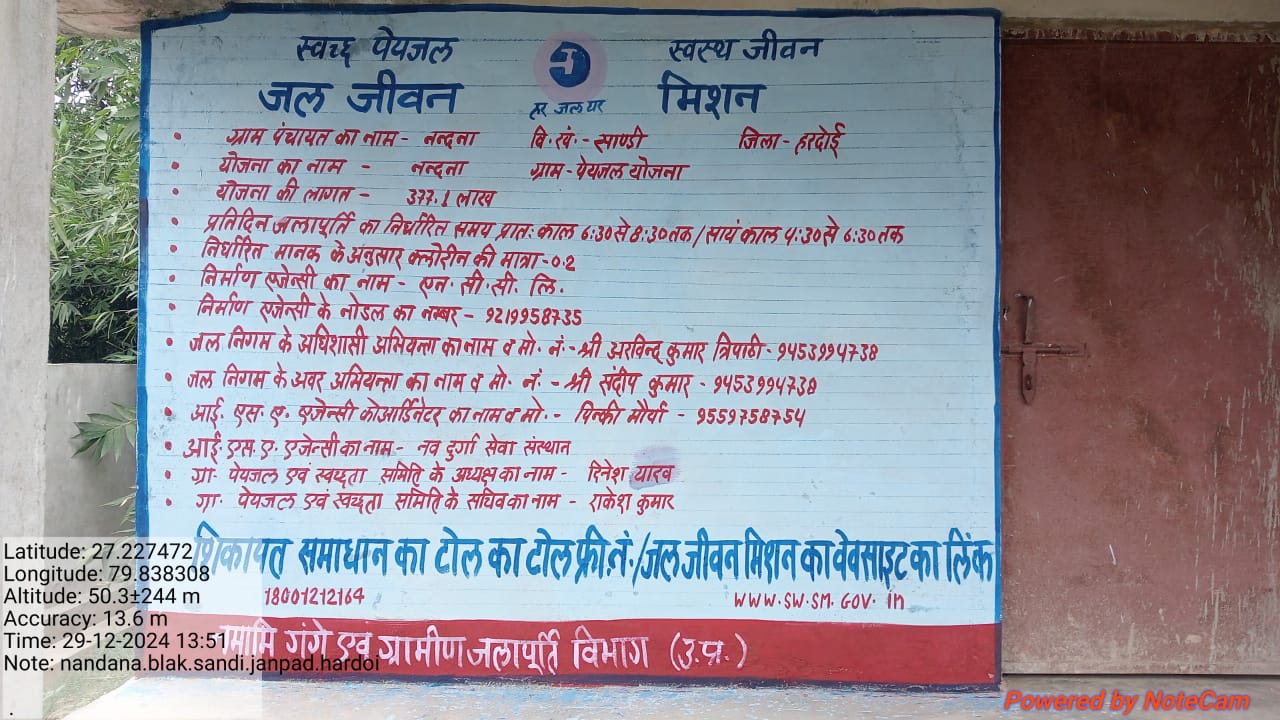 स्वच्छ पेयजल स्वस्थ जीवन
जल जीवन मिशन
हर जल घर
• ग्राम पंचायत का नाम - नन्दना वि.खं. - साण्डी जिला - हरदोई
• योजना का नाम - नन्दना ग्राम - पेयजल योजना
• योजना की लागत - 377.1 लाख
• प्रतिदिन जलापूर्ति का निर्धारित समय प्रातः काल 6:30 से 8:30 तक / सायं काल 4:30 से 6:30 तक
• निर्धारित मानक के अनुसार क्लोरीन की मात्रा - 0.2
• निर्माण एजेन्सी का नाम - एन. सी. सी. लि.
• निर्माण एजेन्सी के नोडल का नम्बर - 9219958735
• जल निगम के अधिशासी अभियन्ता का नाम व मो. नं. - श्री अरविन्द कुमार त्रिपाठी - 9453994738
• जल निगम के अवर अभियन्ता का नाम व मो. नं. - श्री संदीप कुमार - 9453994738
• आई. एस. ए. एजेन्सी कोआर्डिनेटर का नाम व मो. - पिन्की मौर्या - 9559758754
• आई. एस. ए. एजेन्सी का नाम - नव दुर्गा सेवा संस्थान
• ग्रा. पेयजल एवं स्वच्छता समिति के अध्यक्ष का नाम - दिनेश यादव
• ग्रा. पेयजल एवं स्वच्छता समिति के सचिव का नाम - राकेश कुमार
शिकायत समाधान का टोल का टोल फ्री.नं./जल जीवन मिशन का वेवसाइट का लिंक
18001212164 www.sw.sm.gov.in
नमामि गंगे एवं ग्रामीण जलापूर्ति विभाग (उ.प्र.)
Latitude: 27.227472
Longitude: 79.838308
Altitude: 50.3±244 m
Accuracy: 13.6 m
Time: 29-12-2024 13:51
Note: nandana.blak.sandi.janpad.hardoi
.
Powered by NoteCam